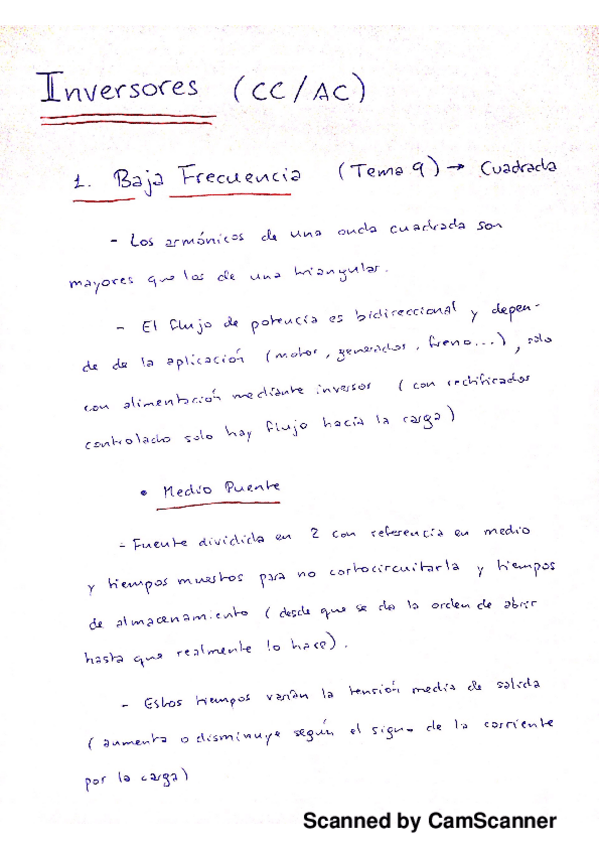 Inversores (CC/AC)
1. Baja Frecuencia (Tema 9) → Cuadrada
- Los armónicos de una onda cuadrada son
mayores que los de una triangular.
- El flujo de potencia es bidireccional y depen-
de de la aplicación (motor, generador, freno...), solo
con alimentación mediante inversor (con rectificador
controlado solo hay flujo hacia la carga)
• Medio Puente
- Fuente dividida en 2 con referencia en medio
y tiempos muertos para no cortocircuitarla y tiempos
de almacenamiento (desde que se da la orden de abrir
hasta que realmente lo hace).
- Estos tiempos varían la tensión media de salida
(aumenta o disminuye según el signo de la corriente
por la carga)
Scanned by CamScanner